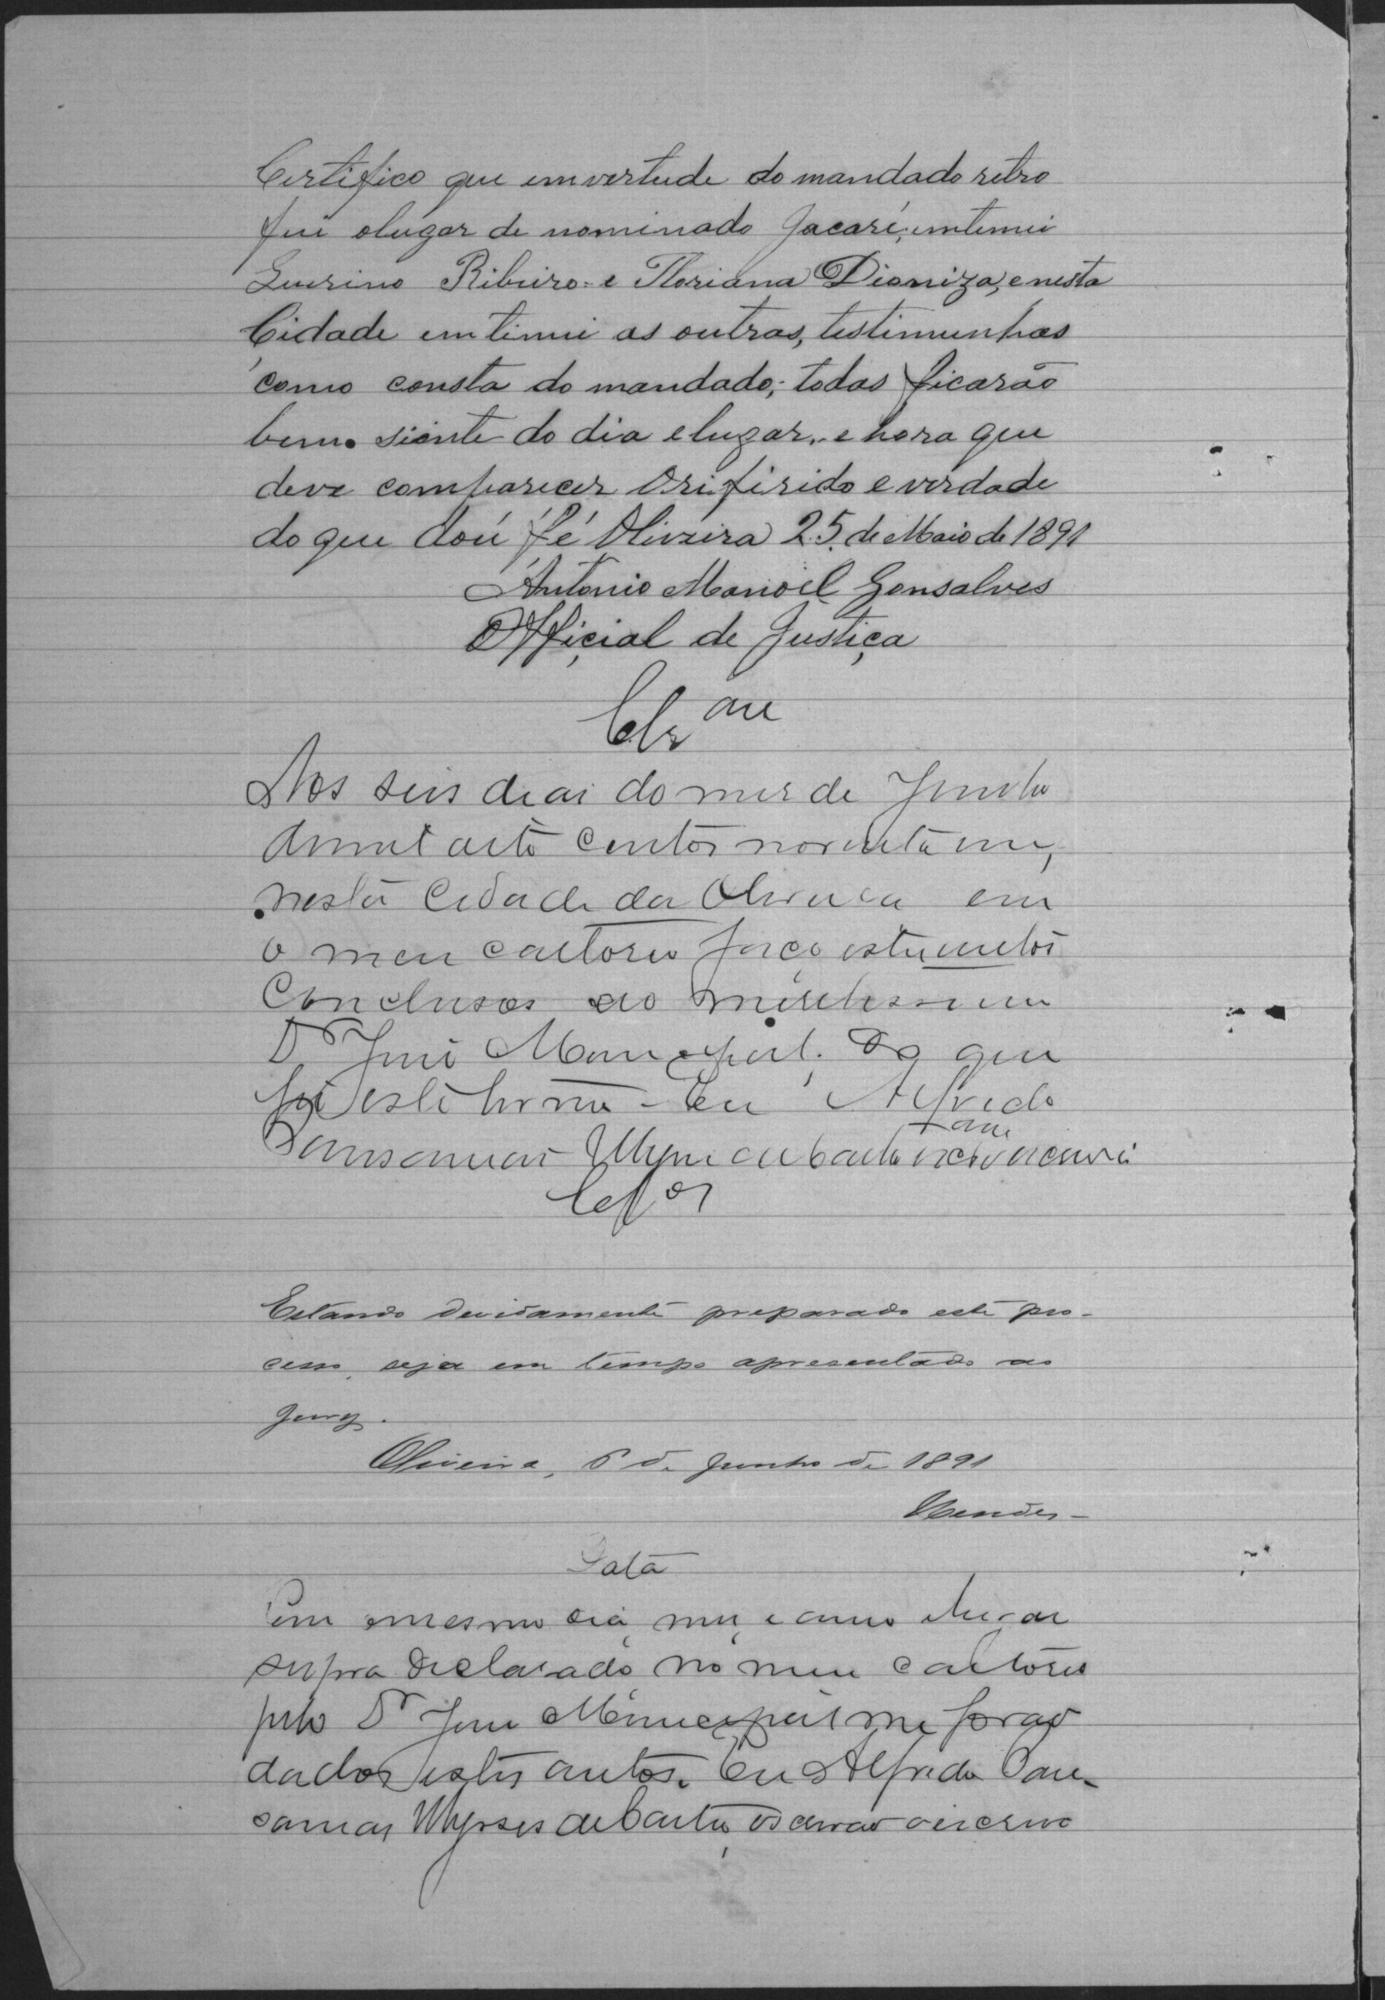 Certifico que em vertude do mandado retro
fui olugar de nominado Jacaré, emtemei
Querino Ribeiro e Floriana Dioniza, e nesta
Cidade emtimei as outras, testimunhas
como consta do mandado; todas ficarão
bem siente do dia e lugar, e hora que
deve comparecer orifirido e verdade
do que dou fé Oliveira 25 de Maio de 1891
Antonio Manoel Gonsalves
Official de Justiça
Clsam
Aos seis dias do mes de Junho
de mil oito centos noventa um,
nesta Cidade da Oliveira em
o meu cartorio faço estes autos
Conclusos ao
Dr Juis Municipal. Do que
fis este termo - Eu Alfredo
Ulysses de Castro
Clsos
Estando devidamente preparado este pro-
cesso, seja em tempo apresentado ao
jury.
Oliveira, 6 de Junho de 1891
Mendes -
Data
Em o mesmo dia, mes, e anno e lugar
supra declarado, no meu cartorio
pelo Dr Juis Municipal me forão
dados estes autos. Eu Alfredo
Ulysses de Castro, escrivão o escrevi